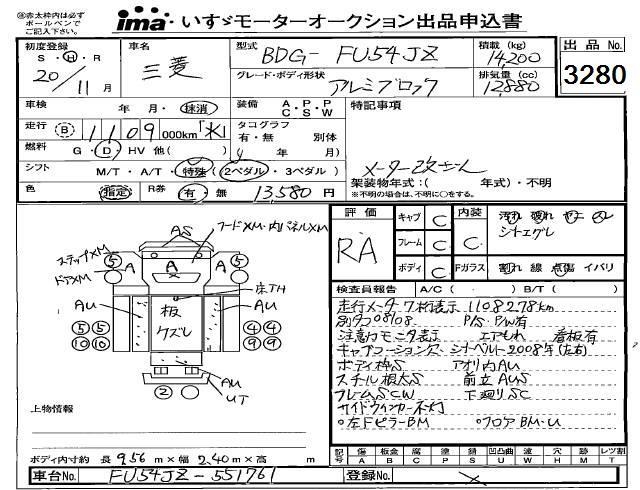 ㊟赤太枠内は必ず
ボールペンで
ご記入下さい。
ima・いすゞモーターオークション出品申込書
初度登録
S・H・R
20/11月
車名
三菱
型式
BDG- FU54JZ
積載 (kg)
14,200
出品No.
3280
グレード・ボディ形状
アルミブロック
排気量 (cc)
12880
車検 年 月・抹消
装備 A.P.P
C S W
特記事項
走行 B 1109 000km
タコグラフ
有・無 別体
燃料 G・D HV 他( )
( 年 月)
シフト M/T・A/T・特殊(2ペダル・3ペダル)
メーター改ざん
架装物年式:( 年式)・不明
※不明の場合は、不明に○をする。
色 指定 R券 有・無 13,580円
評価
RA
キャブ C
フレーム C
ボディ C
内装 C
汚れ 破れ ヤニ スレ
シートエグレ
Fガラス 割れ 線 点傷 イバリ
検査員報告 A/C( ・ ) B/T( )
走行メーター7桁表示 1108278km
別タコ08/08 P/S・P/W有
注意灯モニタ表示 エアもれ 看板有
キャブコーション欠、シートベルト2008年(左右)
ボディ枠S アオリ内AU
スチール根太S 前立AUS
フレームSCW 下廻りSC
サイドウィンカー不灯
○左下ピラーBM ○フロアBM・U
AS
フードXM・内パネルXM
ステップXM
ドアXM
A
A
A
床TH
AU
AU
板
クズレ
⑤
⑤
⑤⑤
⑩⑩
④④
⑨⑨
②
AU
UT
上物情報
ボディ内寸約 長 9.56 m×幅 2.40 m×高 m
記号 傷 A 板金 B 腐 C 塗 P 錆 S 凹凸曲 U 波 W 穴 H メ M 跡 T レツ1割
車台No. FU54JZ-551761
登録No.